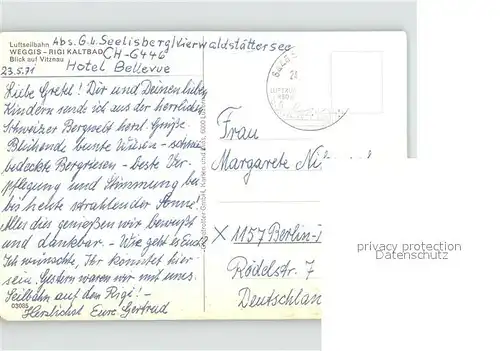 Luftseilbahn
WEGGIS - RIGI KALTBAD
Blick auf Vitznau
Abs. G.L. Seelisberg/Vierwaldstättersee
CH-6446
Hotel Bellevue
23.5.71
Liebe Gretel! Dir und Deinen lieben
Kindern sende ich aus der herrlichen
Schweizer Bergwelt herzl. Grüße.
Blühende bunte Wiesen - schnee-
bedeckte Bergriesen - beste Ver-
pflegung und Stimmung bei
bis heute strahlender Sonne!
Alles dies genießen wir bewußt
und dankbar. - Wie geht es Euch?
Ich wünschte, Ihr könntet hier
sein. Gestern waren wir mit
Seilbahn auf den Rigi! -
Herzlichst Eure Gertrud
03085
Frau
Margarete
X 1157 Berlin-
Rödelstr. 7
Deutschland
privacy protection
Datenschutz